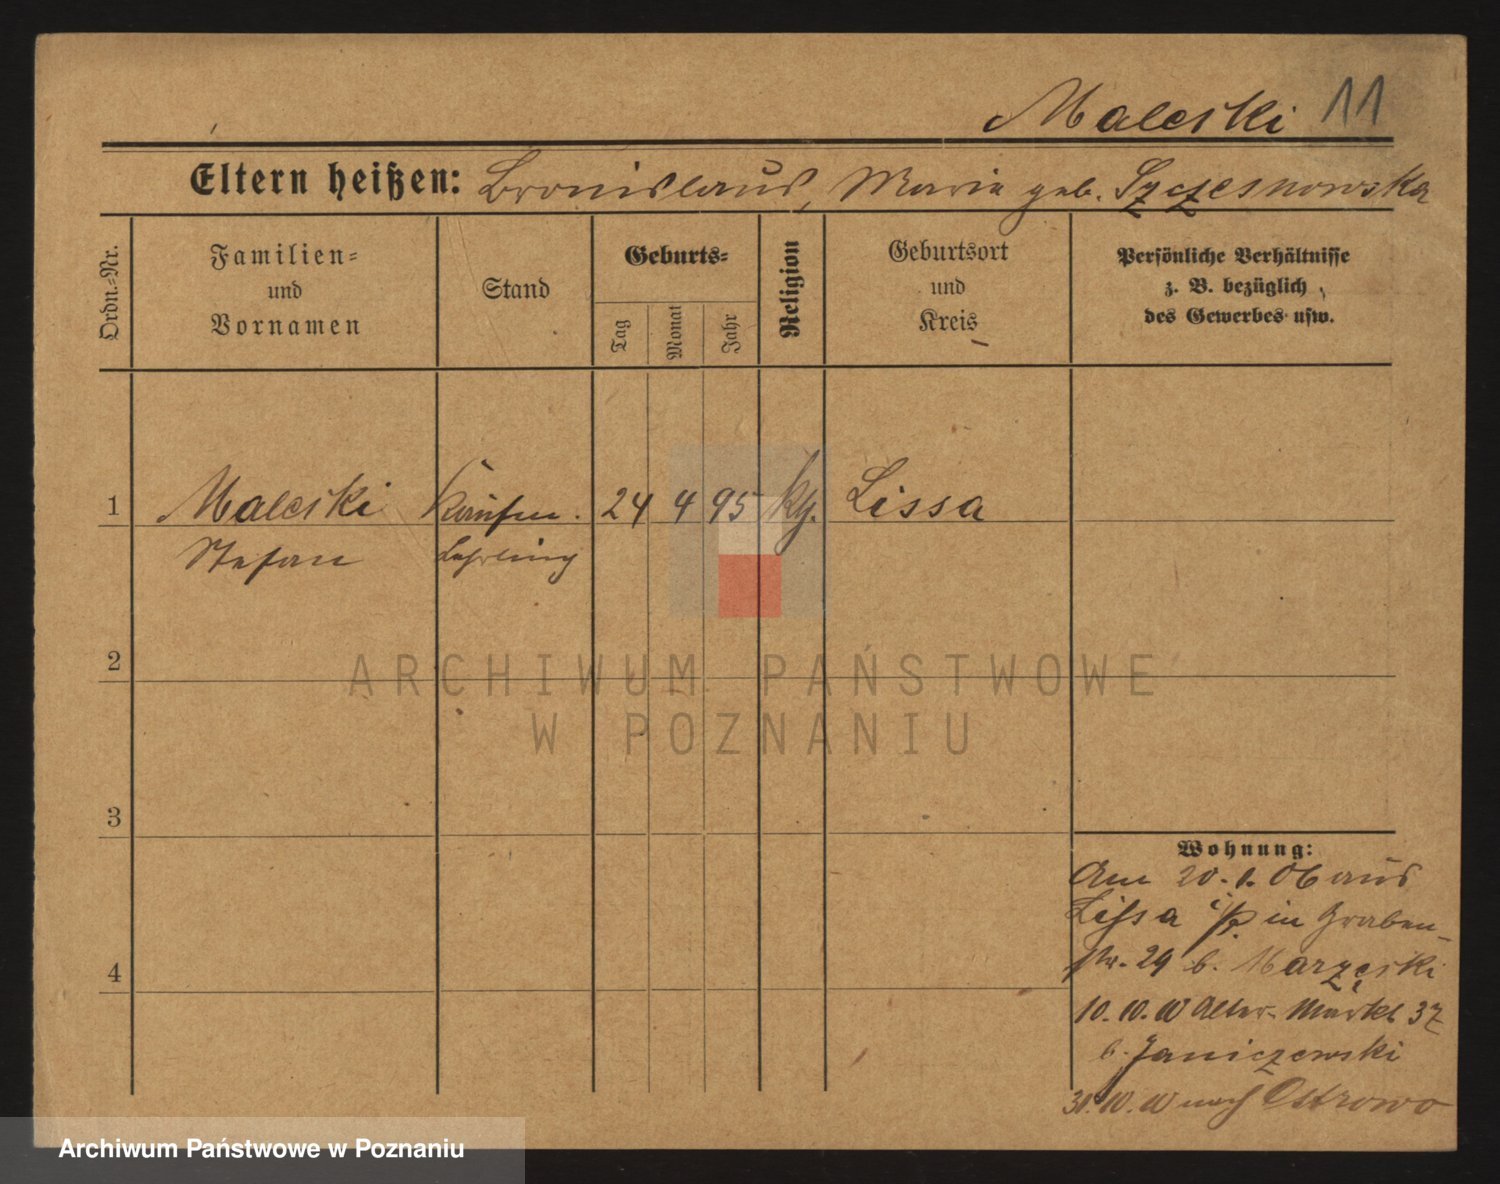 Maleski 11
Eltern heißen: Bronislaus, Marie geb. Szczesnowska
Ordn.=Nr.
Familien=
und
Vornamen
Stand
Geburts=
Tag
Monat
Jahr
Religion
Geburtsort
und
Kreis
Persönliche Verhältnisse
z. B. bezüglich
des Gewerbes usw.
1 Maleski Kaufm. 24 4 95 kth. Lissa
Stefan Lehrling
2
3
4
Wohnung:
Am 20. 1. 06 aus
Lissa i/P. in Graben-
str. 29 b.
10. 10. 10 Alter-Markt 37
b. Janiczewski
31. 10. 10 nach Ostrowo
ARCHIWUM PAŃSTWOWE
W POZNANIU
Archiwum Państwowe w Poznaniu